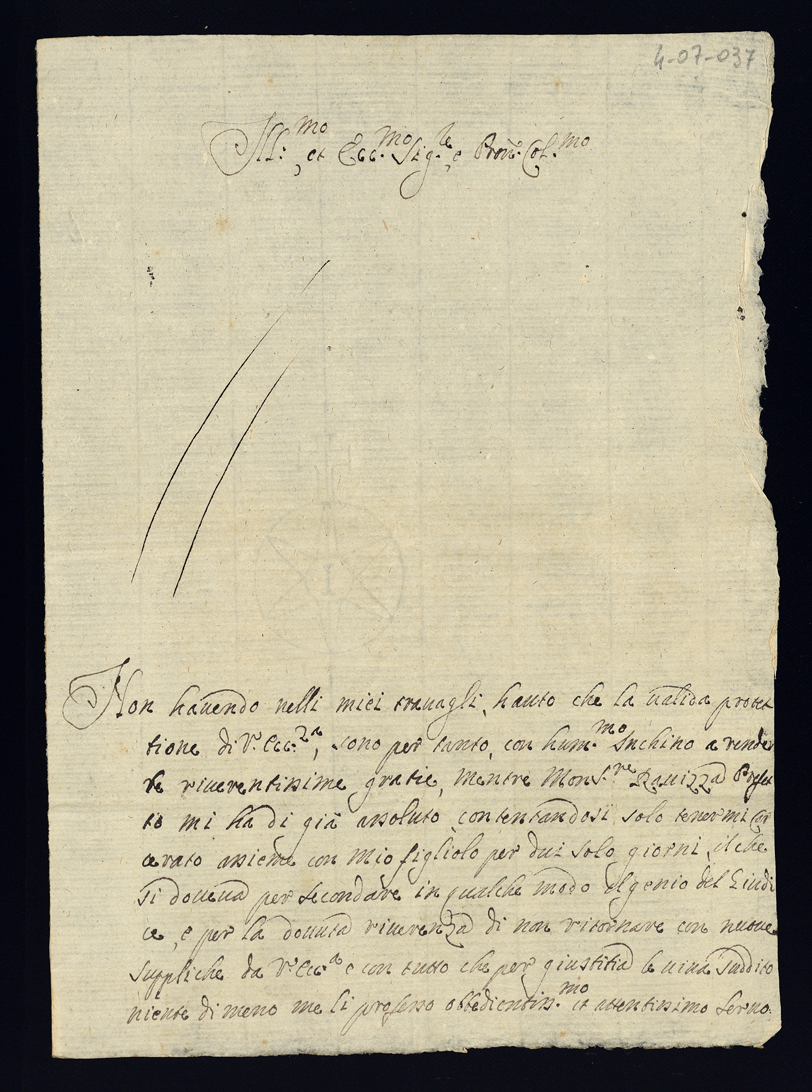 4-07-037
Ill:mo et Ecc.mo Sig.re e Pron Col.mo
Non havendo nelli miei travagli, hauto che la valida protet
tione di V. Ecc.za, sono per tanto, con hum.mo Inchino a render
le riverentissime gratie, mentre Mons.re Ravizza Prefet
to mi ha di già assoluto contentandosi solo tenermi Car
cerato assieme con mio figliolo per dui solo giorni, il che
si doveva per secondare in qualche modo el genio del Giudi
ce, e per la dovuta riverenza di non ritornare con nuove
suppliche da V. Ecc.a e con tutto che per giustitia le viva suddito
niente di meno me li professo obbedientiss.mo et attentissimo servo.